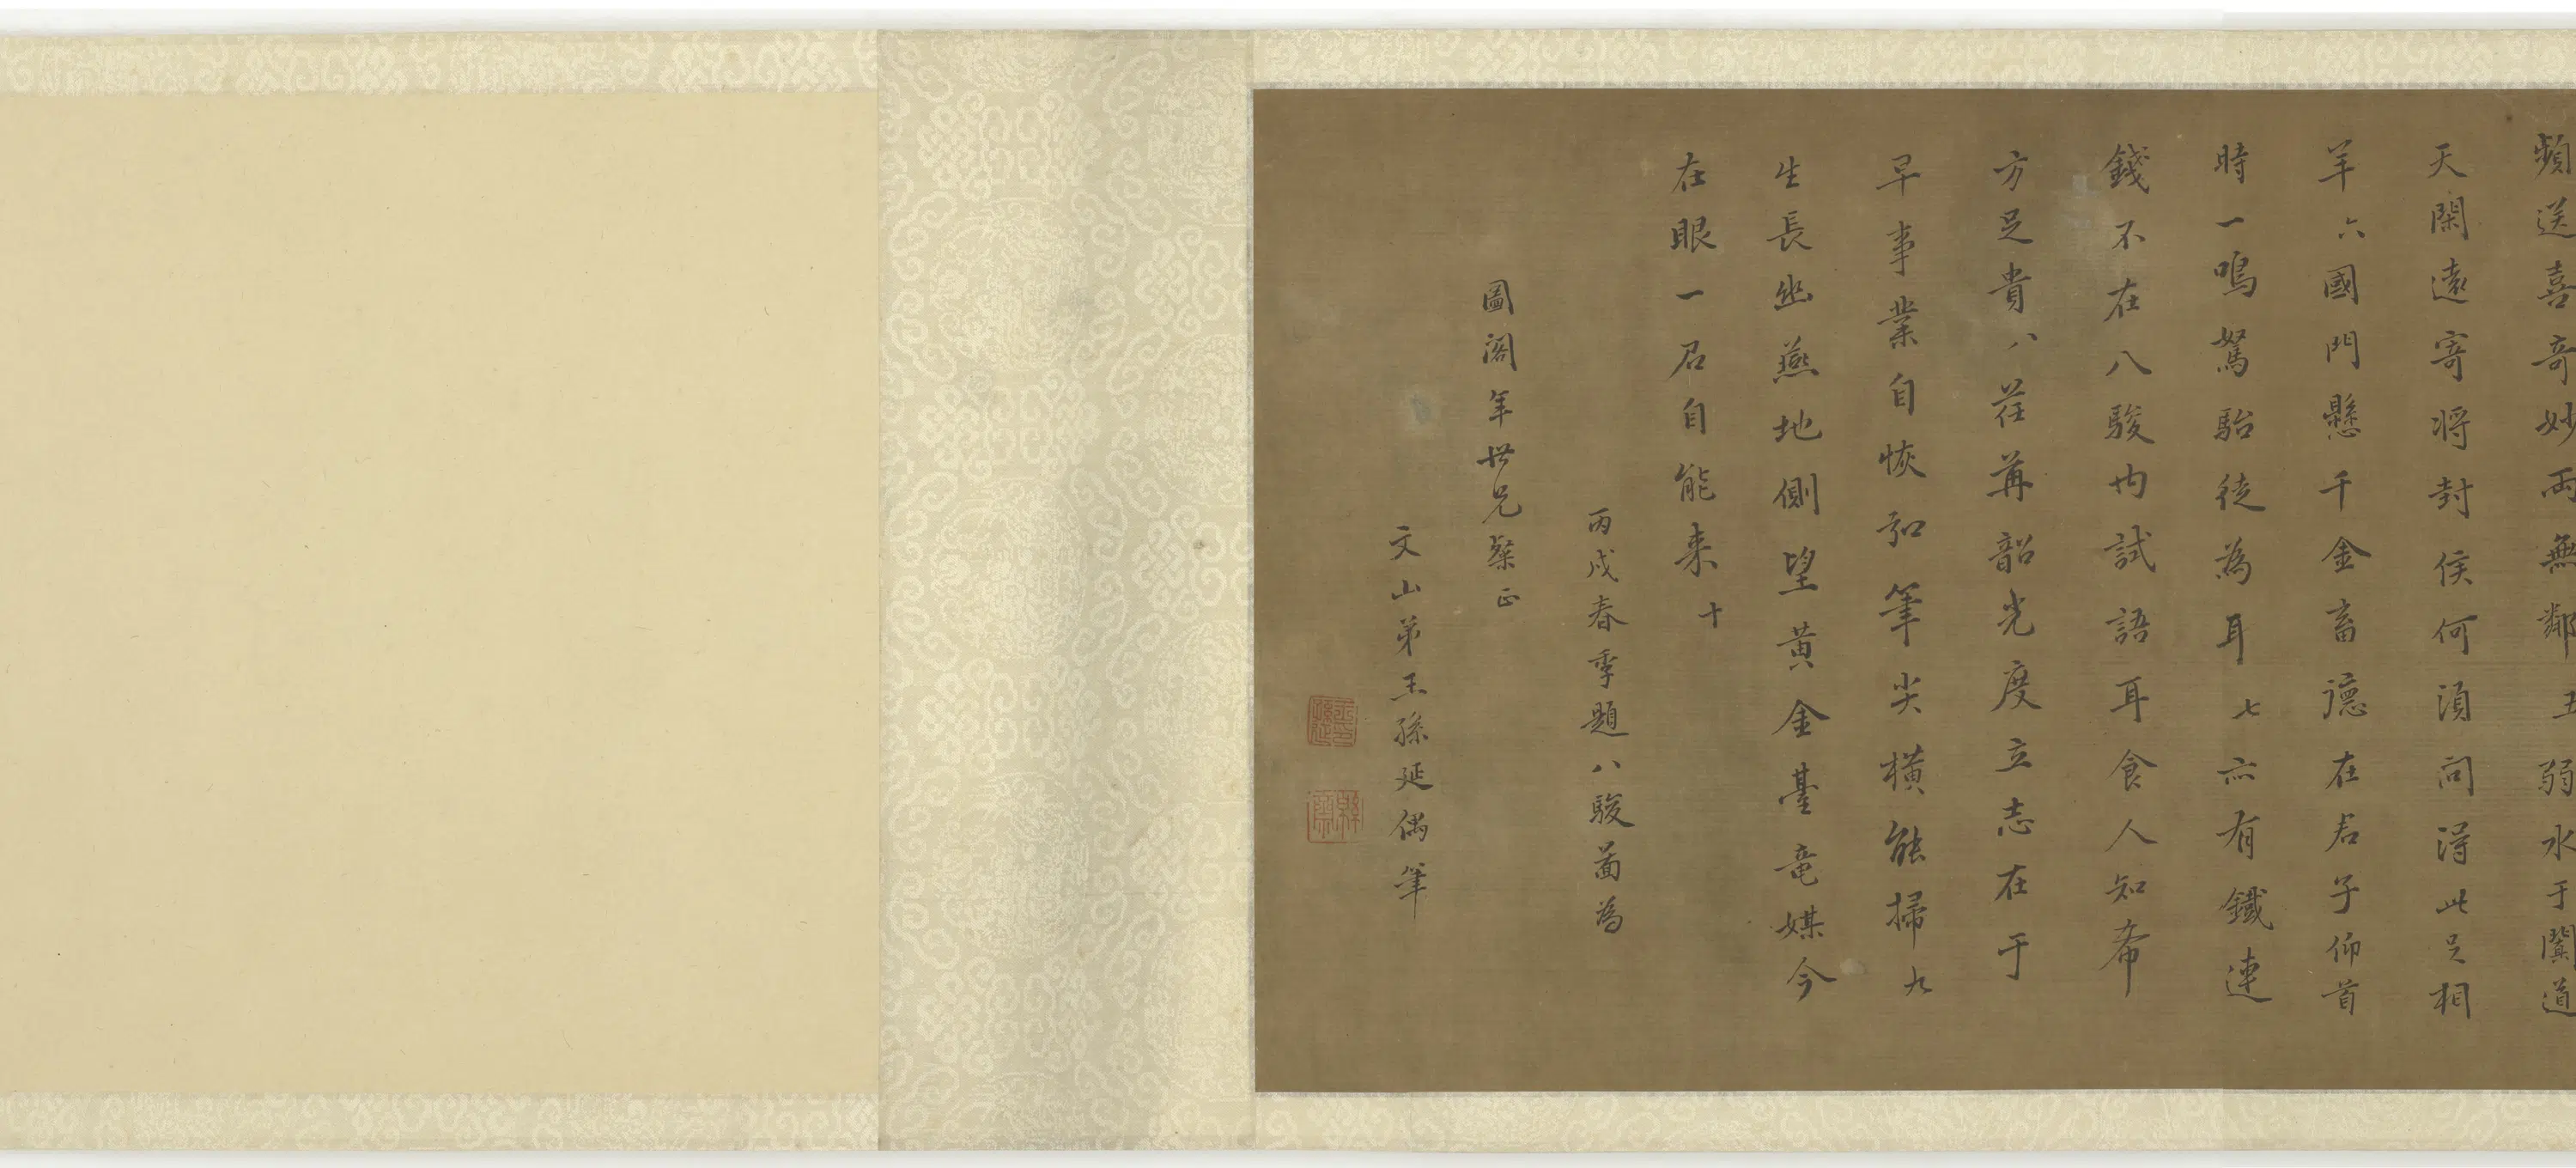 頻送喜奇妙両無鄰五弱水于闐道
天閑遠寄將封侯何須問得此足相
羊六國門懸千金畜德在君子仰首
時一鳴駑駘徒為耳七亦有鐵連
錢不在八駿内試語耳食人知希
方足貴八荏苒韶光度立志在于
早事業自恢弘筆尖橫能掃九
生長幽燕地側望黃金臺竜媒今
在眼一召自能来十
丙戌春季題八駿啚為
圖閣年世兄粲正
文山弟王孫延偶筆